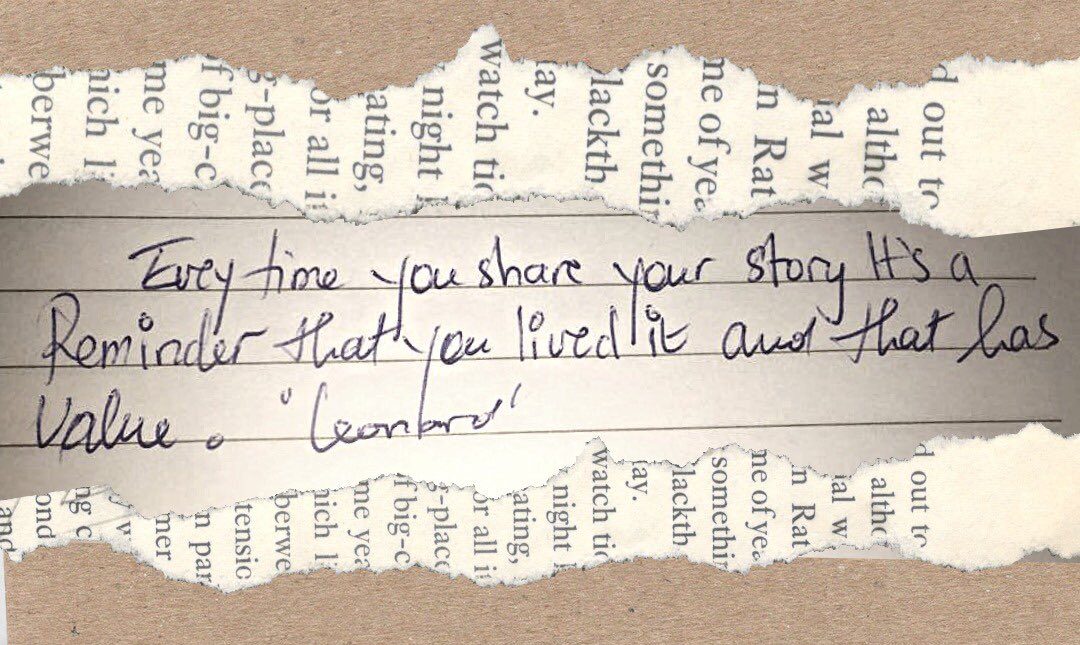 d out to
altho
ial w
n Rat
me of yea
somethi
lackth
ay.
watch tic
night
ating,
or all i
g-place
f big-c
me yea
nich li
berwe
Evey time you share your story It's a
Reminder that you lived it and that has
Value. 'Leonard'
d out to
altho
ial w
n Rat
me of yea
somethi
lackth
ay.
watch tic
night
ating,
or all i
-place
f big-c
me yea
nich l
berwe
tensic
n par
mer
ng c
ond
and